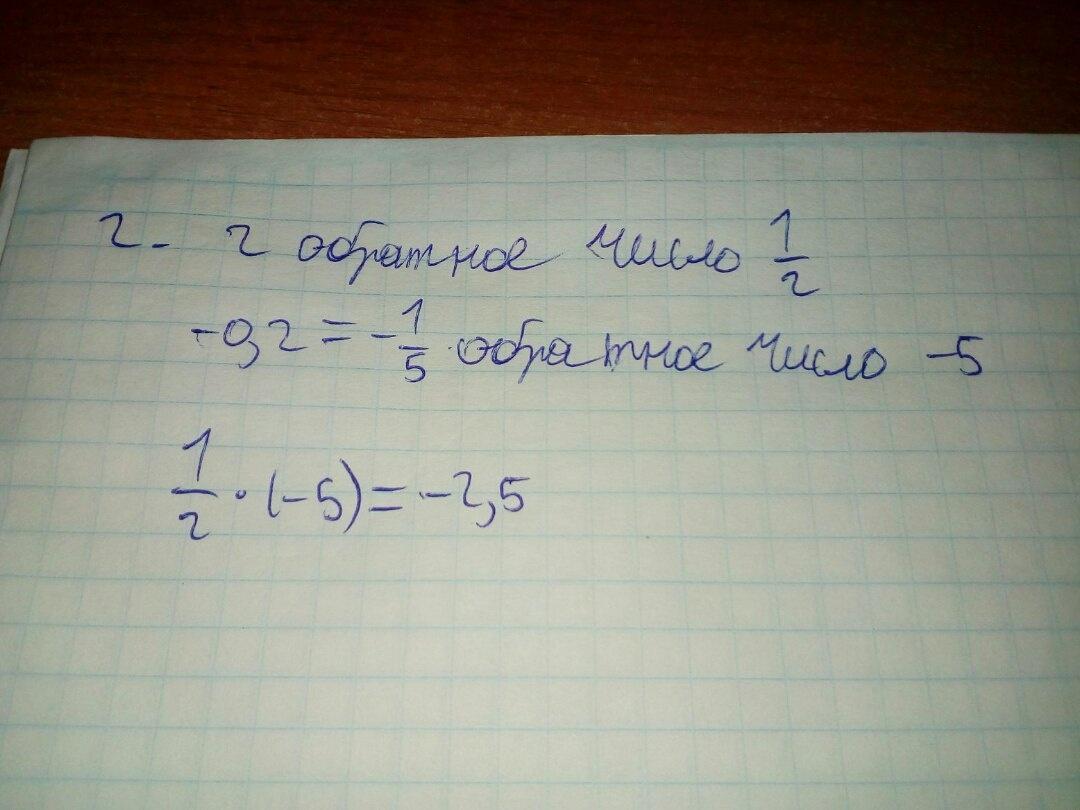 2. 2 обратное число 1/2
-0,2 = -1/5 обратное число -5
1/2 · (-5) = -2,5